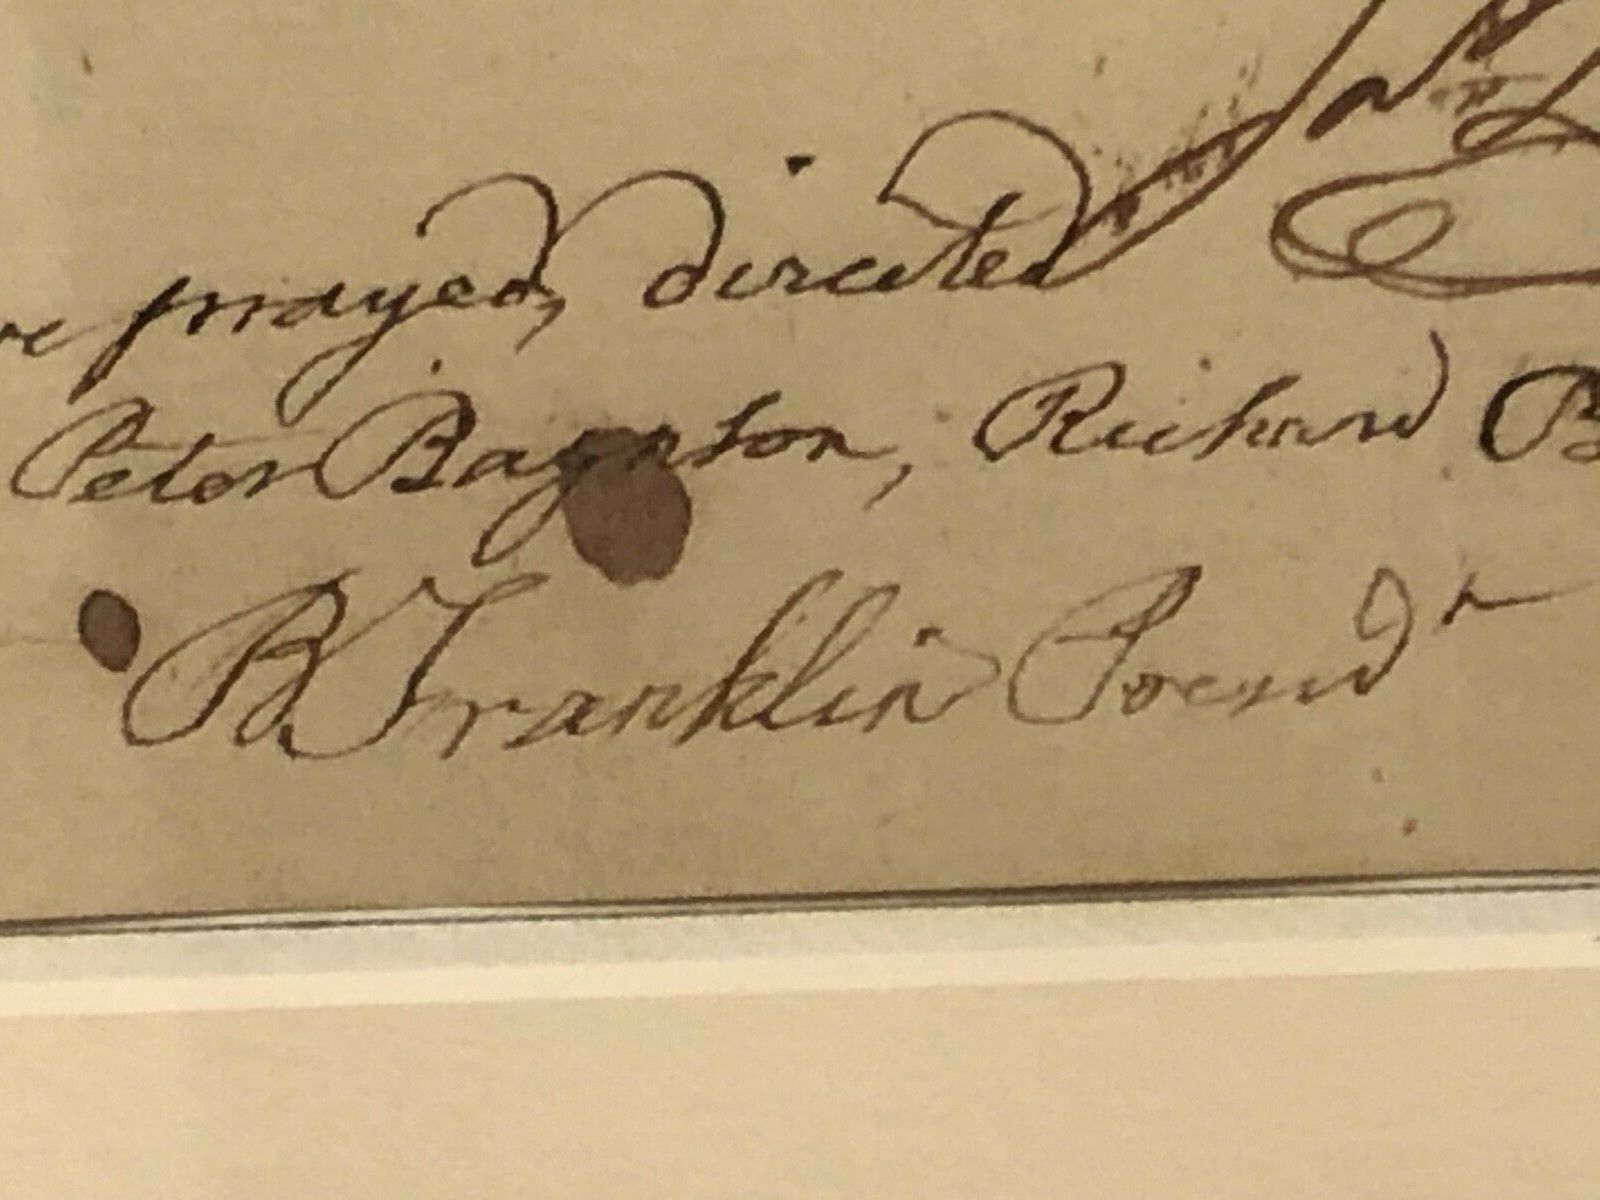 prayed, directed
Peter Baynton, Richard B
B Franklin Presidt